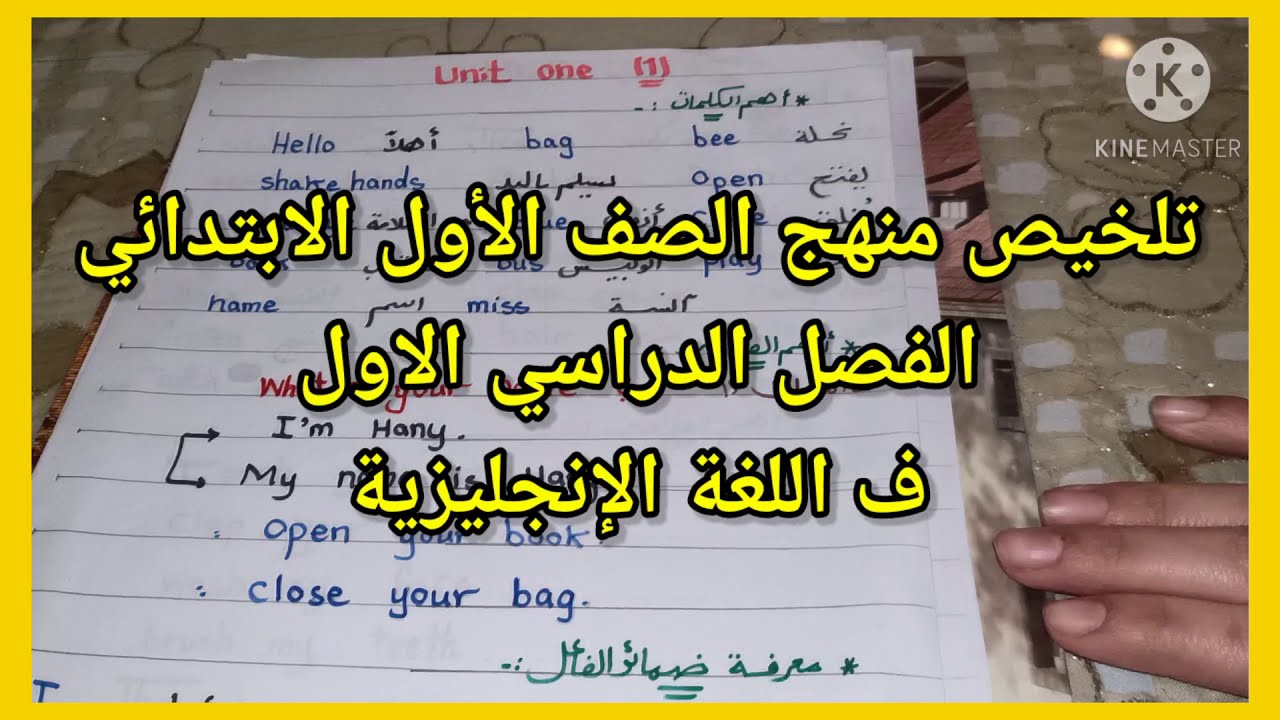 Unit one (1)
* أهم الكلمات :-
Hello أهلاً bag bee نحلة
shake hands يسلم باليد open يفتح
تلخيص منهج الصف الأول الابتدائي
bus play
name اسم miss آنسة
الفصل الدراسي الاول
your
I'm Hany.
My is
ف اللغة الإنجليزية
: open your book.
: close your bag.
* معرفة ضمائر الفاعل :-
I
K
KINEMASTER